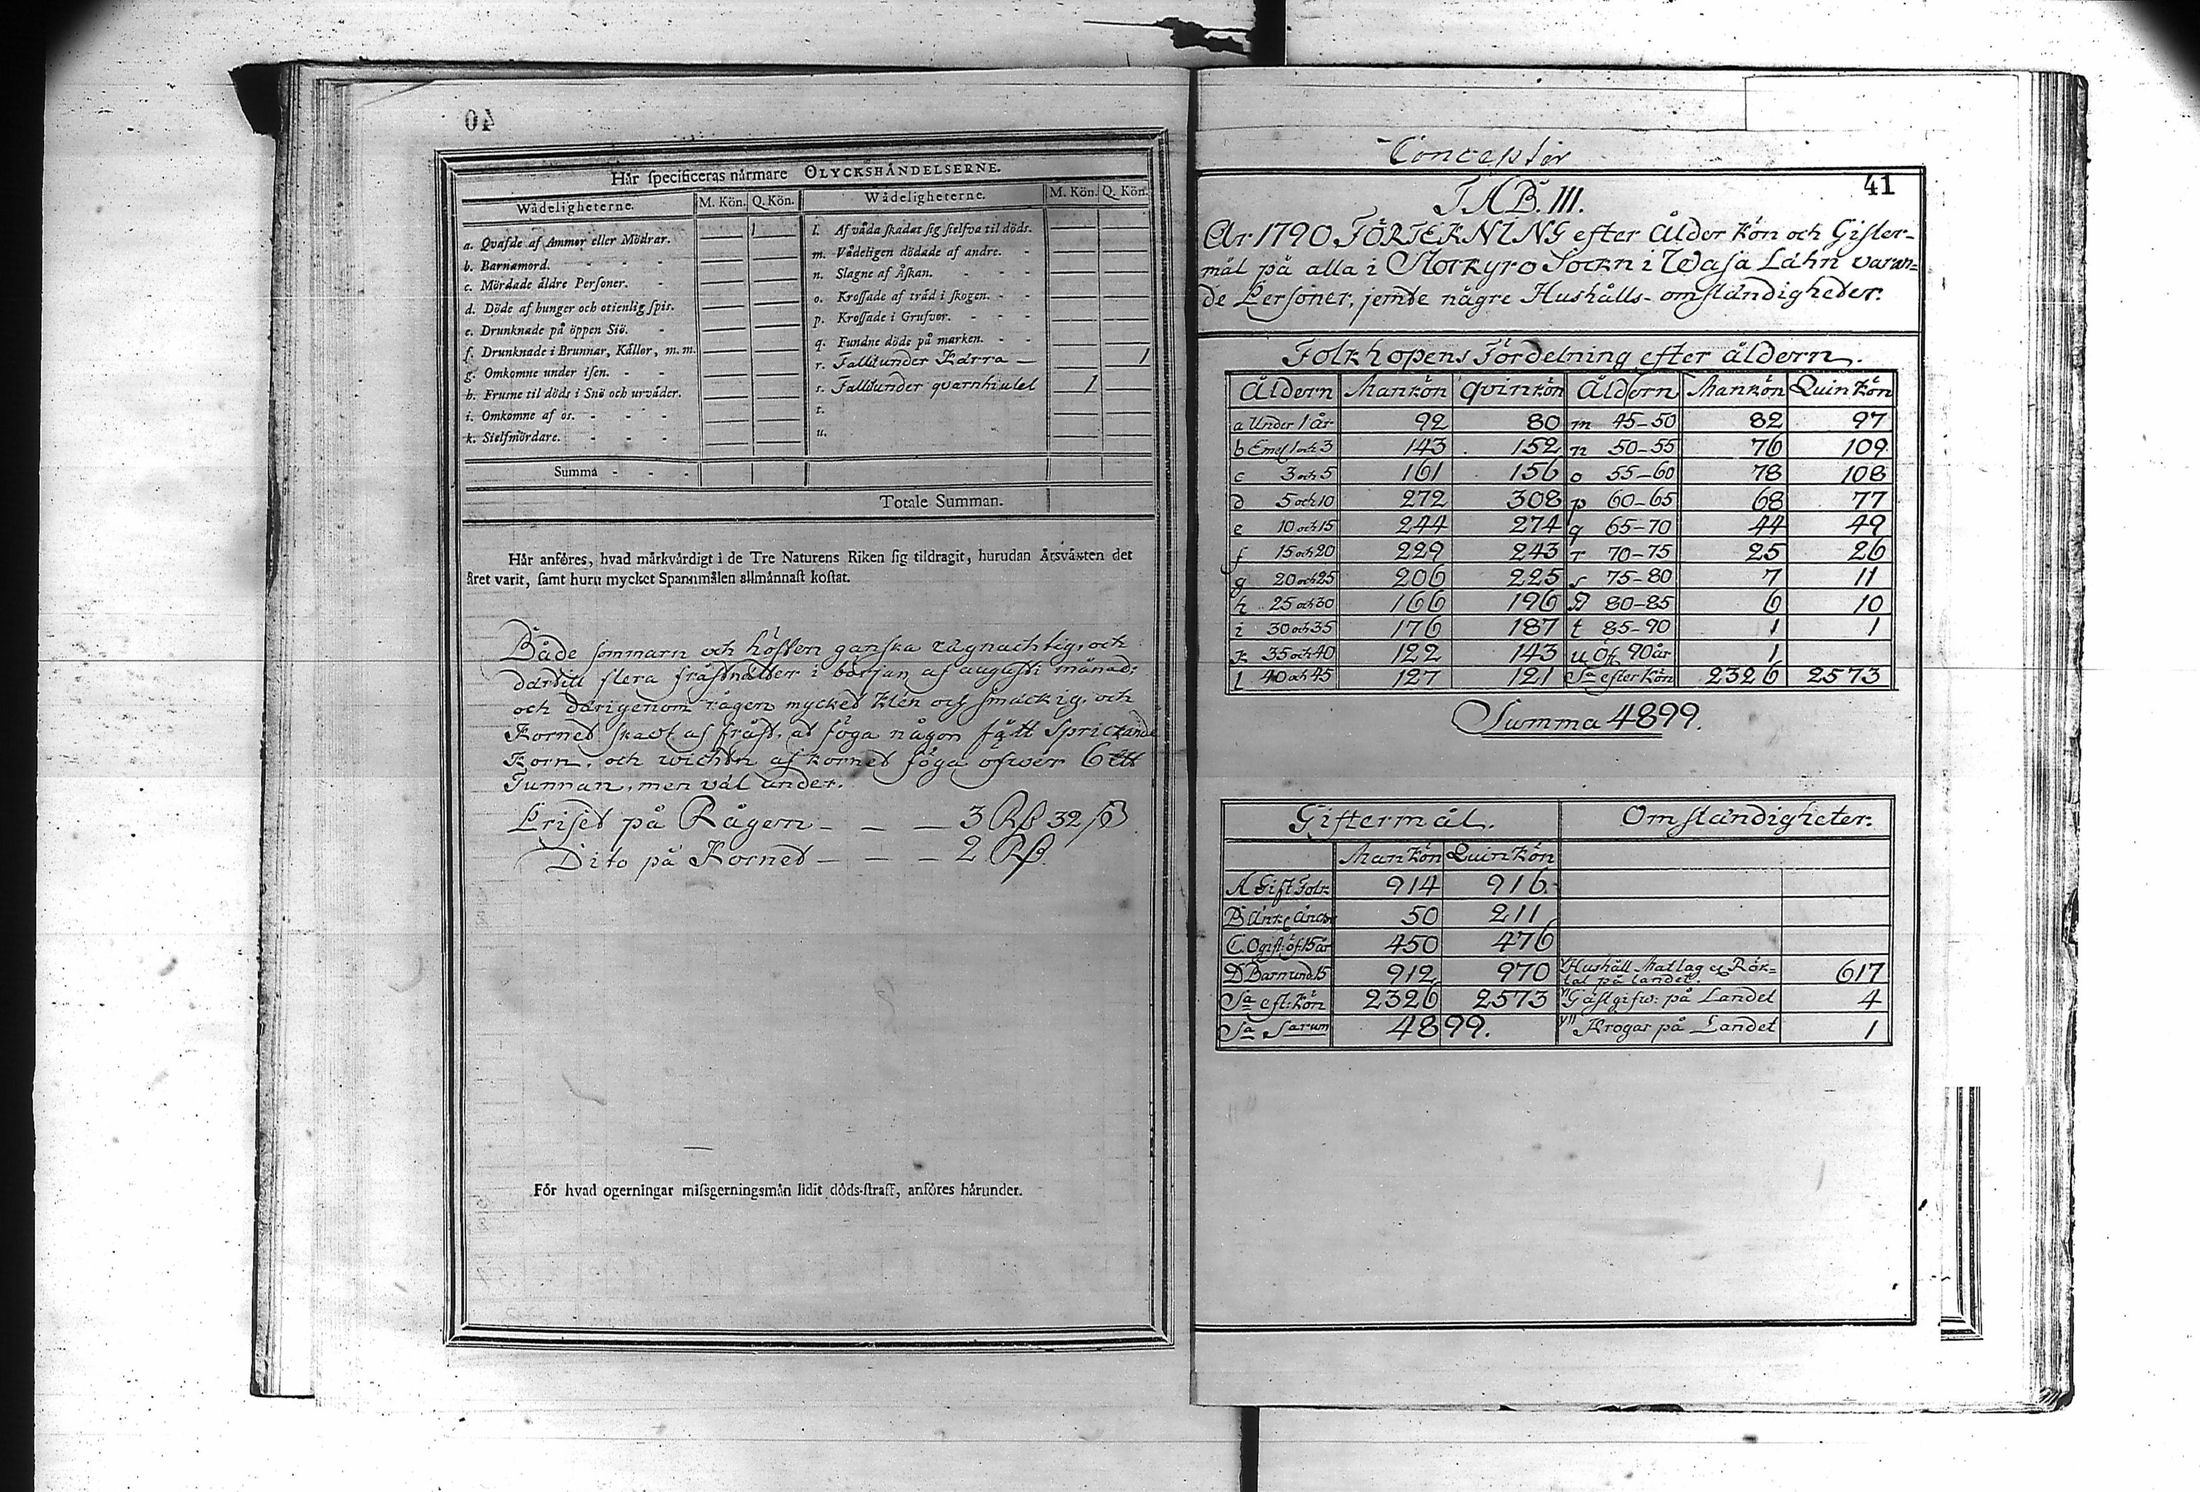 40
Här specificeras närmare OLYCKSHÄNDELSERNE.
Wådeligheterne. M. Kön. Q. Kön. Wådeligheterne. M. Kön. Q. Kön.
a. Qvafde af Ammor eller Mödrar. — 1 l. Af våda skadat sig sielfva til döds. — —
b. Barnamord. - - - — — m. Vådeligen dödade af andre. - — —
c. Mördade äldre Personer. - — — n. Slagne af Åskan. - - - — —
d. Döde af hunger och otienlig spis. — — o. Krossade af träd i skogen. - - — —
e. Drunknade på öppen Siö. - — — p. Krossade i Grufvor. - - - — —
f. Drunknade i Brunnar, Källor, m. m. — — q. Fundne döde på marken. - - — —
g. Omkomne under isen. - - — — r. Fallit under Kärra — — 1
h. Frusne til döds i Snö och urväder. — — s. Fallit under qvarnhiulet 1 —
i. Omkomne af os. - - - - — — t. — —
k. Sielfmördare. - - - — — u. — —
Summa - - -
Totale Summan.
Här anföres, hvad märkvärdigt i de Tre Naturens Riken sig tildragit, hurudan Årsväxten det
året varit, samt huru mycket Spannmålen allmännast kostat.
Både sommarn och hösten ganska rägnachtig, och
därtill flera fråstnätter i början af augusti månad:
och därigenom rågen mycket klén och smäckig, och
Kornet skadt af fråst, at föga någon fått Sprickande
Korn, och wichten af kornet föga öfwer 6
Tunnan, men väl under.
Priset på Rågen — — — 3 Rß 32 ß
Dito på Kornet — — — 2 Rß
För hvad ogerningar missgerningsmän lidit döds-straff, anföres härunder.
Conceptér
41
TAB. III.
År 1790 FÖRTEKNING efter Ålder Kön och Gifter-
mål på alla i Storkyro Sockn i Wasa Lähn varan-
de Personer, jemte någre Hushålls-omständigheter.
Folkhopens Fördelning efter åldern.
Åldern Mankön Qvinkön Åldern Mankön Quinkön
a Under 1 år 92 80 m 45-50 82 97
b Emel 1 och 3 143 152 n 50-55 76 109
c 3 och 5 161 156 o 55-60 78 108
d 5 och 10 272 308 p 60-65 68 77
e 10 och 15 244 274 q 65-70 44 49
f 15 och 20 229 243 r 70-75 25 26
g 20 och 25 206 225 s 75-80 7 11
h 25 och 30 166 196 80-85 6 10
i 30 och 35 176 187 t 85-90 1 1
k 35 och 40 122 143 u Öf 90 år 1
l 40 och 45 127 121 Sa efter Kön 2326 2573
Summa 4899.
Giftermål. Omständigheter.
Mankön Quinkön
A Gift Folk 914 916
B Änk 50 211
C. Ogift: öf: 15 år 450 476
D Barn und 15 912 970 V Hushåll Matlag el Rök=
tal på landet. 617
Sa eft: Kön 2326 2573 VI Gästgifw: på Landet 4
Sa Sarum 4899. VII Krogar på Landet 1